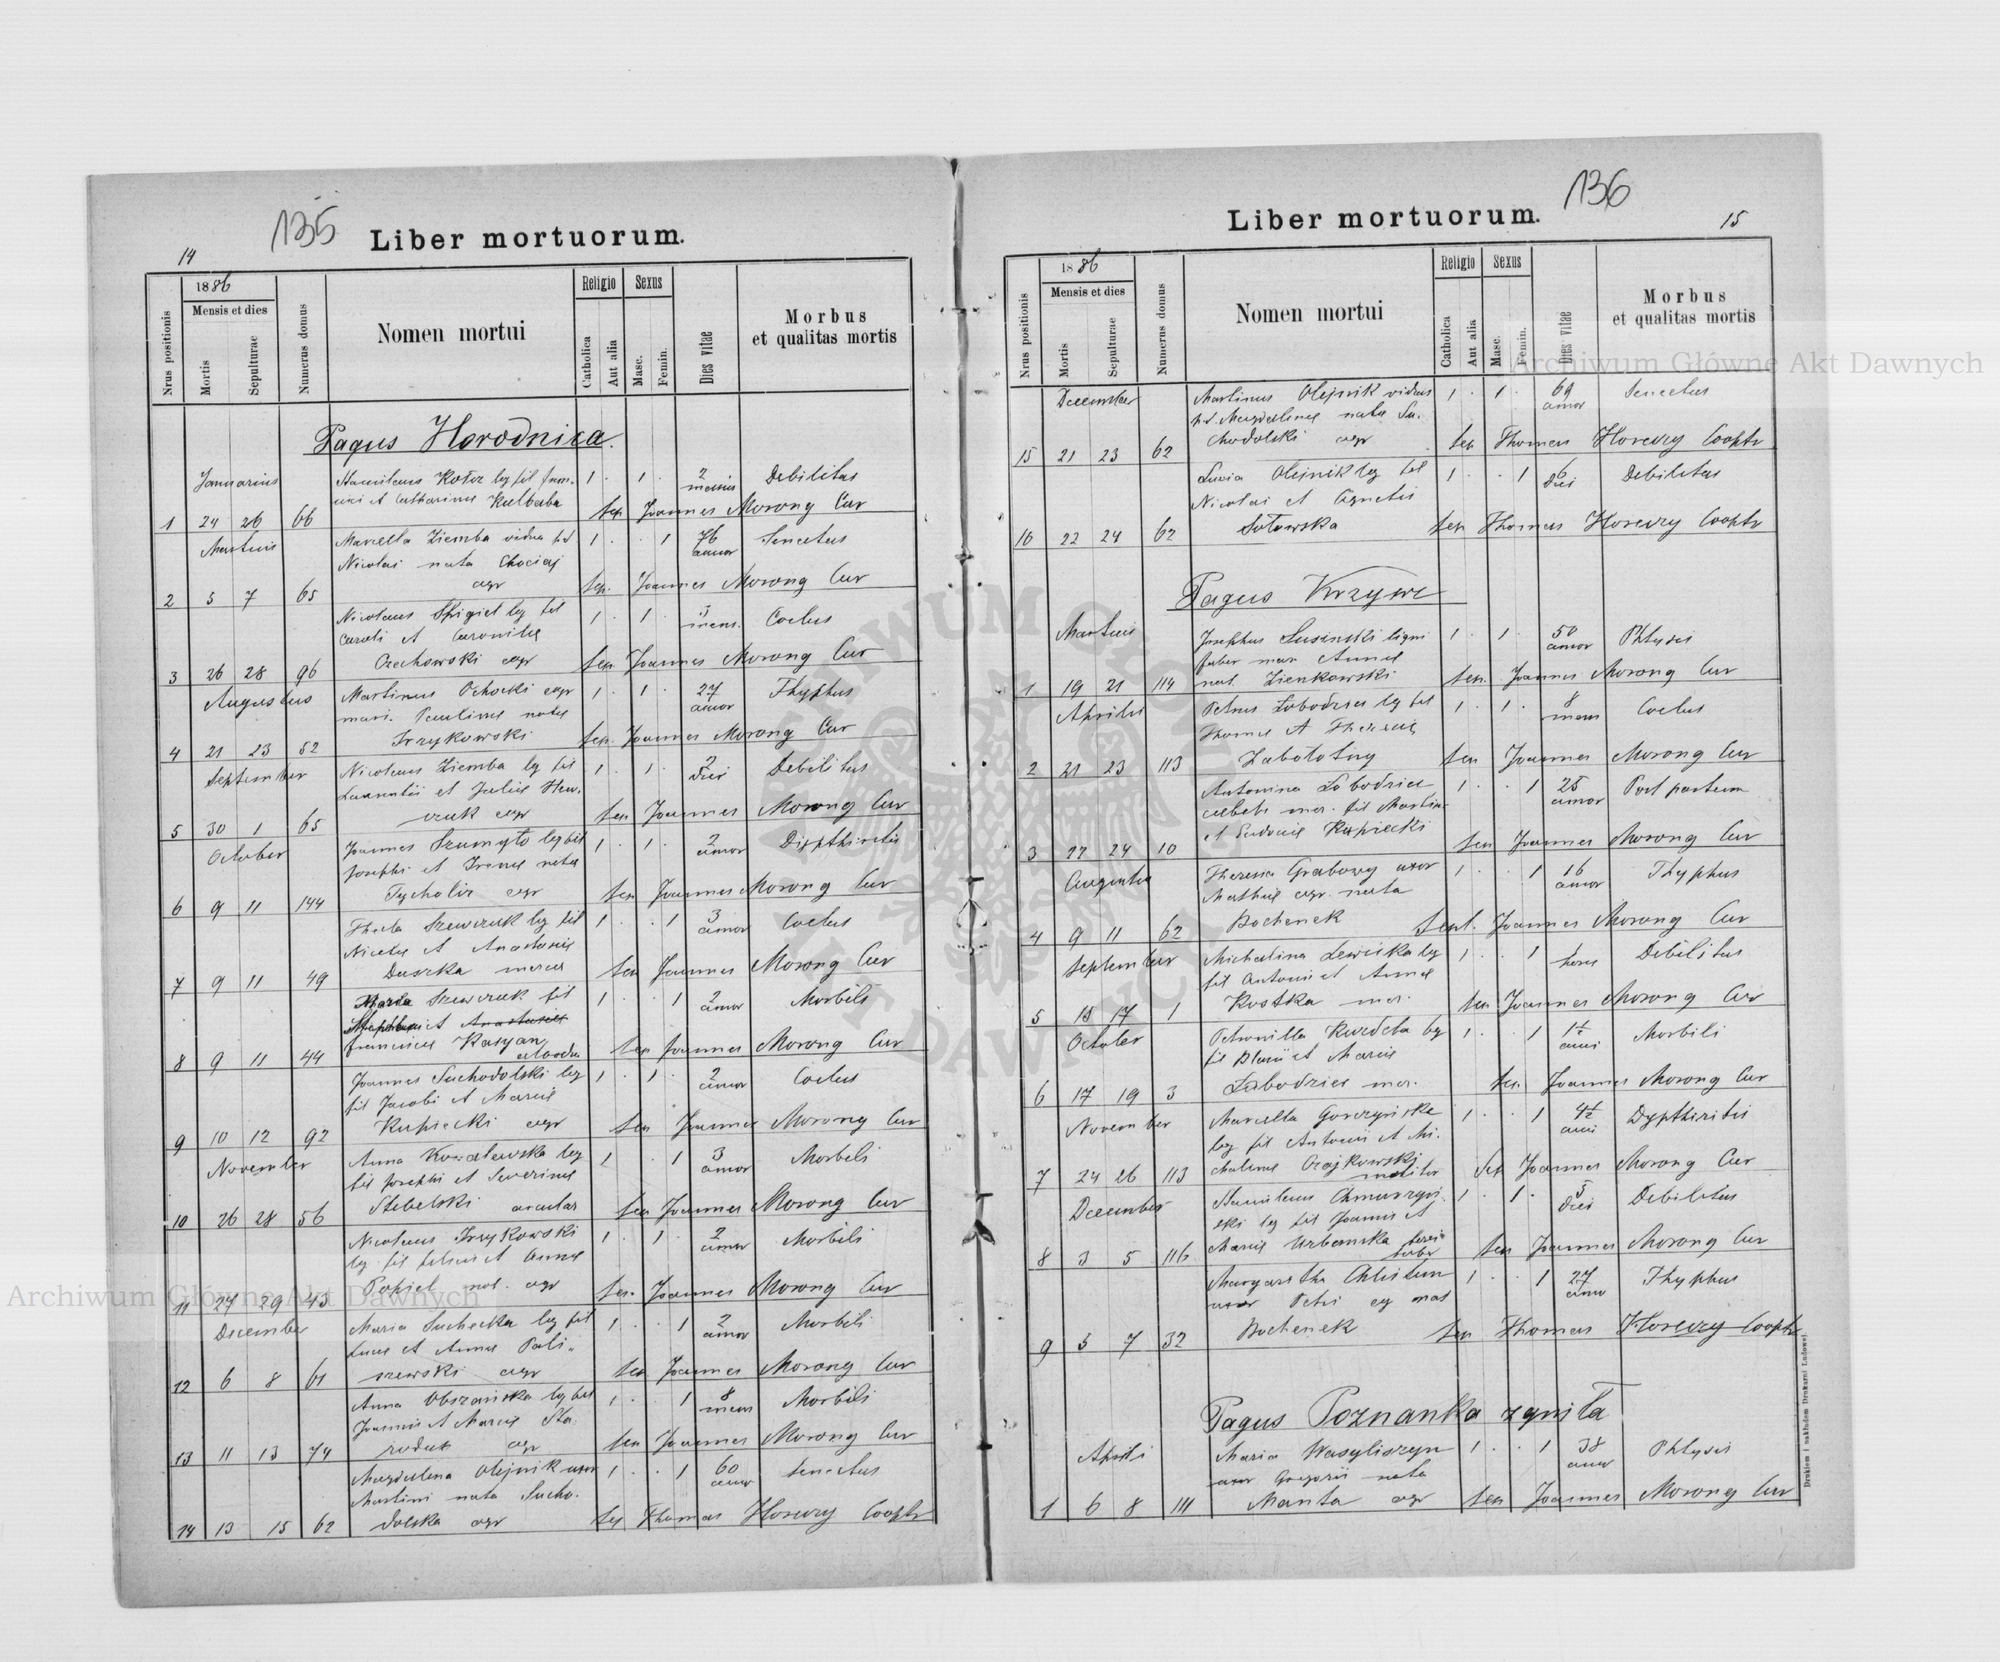 135
14
Liber mortuorum.
Nrus positionis
1886
Mensis et dies
Mortis
Sepulturae
Numerus domus
Nomen mortui
Religio
Catholica
Aut alia
Sexus
Masc.
Femin.
Dies vitae
Morbus
et qualitas mortis
Pagus Horodnica.
Januarius
Stanislaus leg fil
et Catharinae Kulbaba
1 24 26 66 1 . 1 . 2 Debilitas
sep Joannes Morong Cur
Martius
Marcella Ziemba vidua
Nicolai nata Chociaj
agr
2 5 7 65 1 . . 1 76 annor Senectus
sep. Joannes Morong Cur
Nicolaus Spigiel leg fil
Caroli et
Orzechowski agr
3 26 28 96 1 . 1 . 3 mens. Coctus
sep Joannes Morong Cur
Augustus
Martinus Ochocki agr
mari. Paulinae natae
Irzykowski
4 21 23 52 1 . 1 . 27 annor Thyphus
sep. Joannes Morong Cur
September
Nicolaus Ziemba leg fil
Laurentii et Juliae
agr
5 30 1 65 1 . 1 . 2 diei Debilitas
sep Joannes Morong Cur
October
Joannes Szumyło leg fil
Josephi et Irenae natae
Tycholiz agr
6 9 11 144 1 . 1 . 2 annor Dipthiritis
sep Joannes Morong Cur
Thecla Szewczuk leg fil
Nicetae et Anastasiae
Duszka
7 9 11 49 1 . . 1 3 annor Coctus
sep Joannes Morong Cur
Maria Szewczuk fil
et Anastasiae
Franciscae Kasyan
8 9 11 44 1 . . 1 2 annor Morbili
sep Joannes Morong Cur
Joannes Suchodolski leg
fil Jacobi et Mariae
Kupiecki agr
9 10 12 92 1 . 1 . 2 annor Coctus
sep Joannes Morong Cur
November
Anna Kowalewska leg
fil Josephi et Severinae
Stebelski
10 26 28 56 1 . . 1 3 annor Morbili
sep Joannes Morong Cur
Nicolaus Irzykowski
leg. fil et Annae
Popiel nat. agr
11 27 29 43 1 . 1 . 2 annor Morbili
sep. Joannes Morong Cur
December
Maria Suchecka leg fil
Lucae et Annae Pali-
szewski agr
12 6 8 61 1 . . 1 2 annor Morbili
sep Joannes Morong Cur
Anna Obszańska leg fil
Joannis et Mariae Sta-
roduk agr
13 11 13 74 1 . . 1 8 mens Morbili
sep Joannes Morong Cur
Magdalena Olejnik uxor
Martini nata Sucho-
dolska agr
14 13 15 62 1 . . 1 60 annor Senectus
sep Thomas Horewy Cooptr
136
15
Liber mortuorum.
Nrus positionis
1886
Mensis et dies
Mortis
Sepulturae
Numerus domus
Nomen mortui
Religio
Catholica
Aut alia
Sexus
Masc.
Femin.
Dies vitae
Morbus
et qualitas mortis
December
Martinus Olejnik viduus
p.d. Magdalenae natae Su-
chodolski agr
15 21 23 62 1 . 1 . 69 annor Senectus
sep Thomas Horewy Cooptr
Olejnik leg fil
Nicolai et Agnetis
Sotowska
16 22 24 62 1 . . 1 6 diei Debilitas
sep Thomas Horewy Cooptr
Pagus Krzywe
Martius
Josephus Susinski ligni
faber mar Annae
nat Zienkowski
1 19 21 114 1 . 1 . 50 annor Phtysis
sep. Joannes Morong Cur
Aprilis
Petrus Łabodzies leg fil
Thomae et Theresiae
Zabolotny
2 21 23 113 1 . 1 . 8 mens Coctus
sep Joannes Morong Cur
Antonina Łobodzicz
mer. fil Martini
et Eudociae Kupiecki
3 22 24 10 1 . . 1 25 annor Post partum
sep Joannes Morong Cur
Augustus
Theresia Grabowy uxor
Mathiae agr. nata
Bochenek
4 9 11 62 1 . . 1 16 annor Thyphus
sept. Joannes Morong Cur
September
Michalina Lewicka leg
fil Antoni et Annae
Kostka mer.
5 15 17 1 1 . . 1 horae Debilitas
sep Joannes Morong Cur
October
Petronilla leg
fil Blasii et Mariae
Łabodzies mer.
6 17 19 3 1 . . 1 1½ anni Morbili
sep. Joannes Morong Cur
November
Marcella Gorczyńska
leg fil Antonii et Mi-
chalinae Czajkowski
molitor
7 24 26 113 1 . . 1 4½ anni Dypthiritis
sep Joannes Morong Cur
December
Stanislaus Chmurzyń-
ski leg fil Joannis et
Mariae Urbanska
faber
8 3 5 116 1 . 1 . 5 diei Debilitas
sep Joannes Morong Cur
Margaritha Chlistun
uxor Petri agr nat
Bochenek
9 5 7 32 1 . . 1 27 annor Thyphus
sep Thomas Horewy Cooptr
Pagus Poznanka zgniła
Aprili
Maria Wasyliszyn
uxor Gregorii nata
Manta agr
1 6 8 111 1 . . 1 38 annor Phtysis
sep Joannes Morong Cur
Drukiem i nakładem Drukarni Ludowej.
Archiwum Główne Akt Dawnych
Archiwum Główne Akt Dawnych
ARCHIWUM GŁÓWNE AKT DAWNYCH